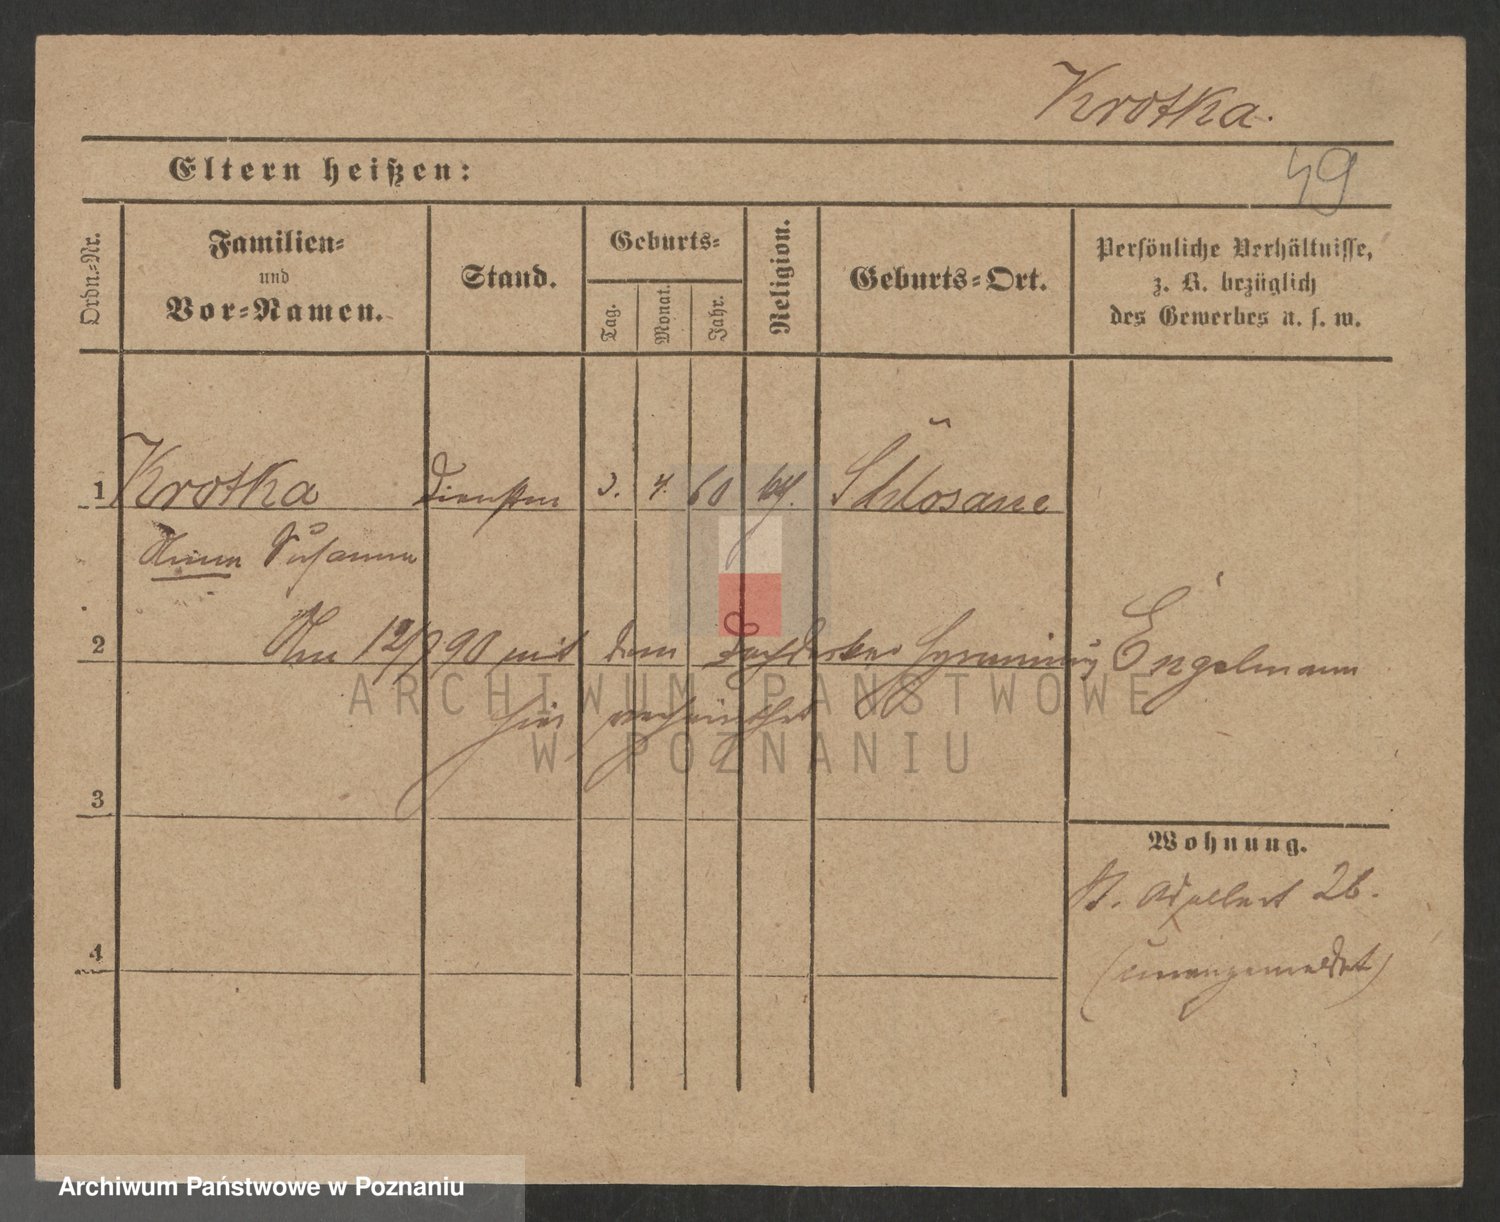 Krotka.
49
Eltern heißen:
Ordn.-Nr.
Familien- und Vor-Namen.
Stand.
Geburts-
Tag.
Monat.
Jahr.
Religion.
Geburts-Ort.
Persönliche Verhältnisse,
z. B. bezüglich
des Gewerbes u. s. w.
1 Krotka 3. 4. 60 Schlosane
Anna Susanna
2 Am 12/ 90 mit dem Dachdecker Engelmann
hier verheirathet
ARCHIWUM PAŃSTWOWE
W POZNANIU
3
Wohnung.
St. Adalbert 26.
4
(unangemeldet)
Archiwum Państwowe w Poznaniu